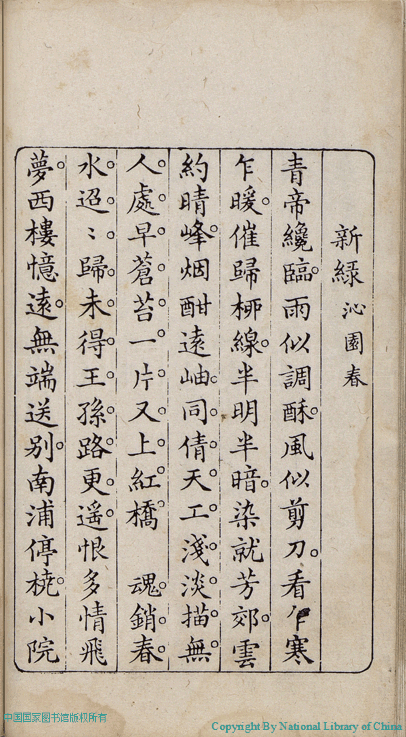 新緑 沁園春
青帝纔臨。雨似調酥。風似剪刀。看乍寒
乍暖。催歸桺線。半明半暗。染就芳郊。雲
約晴峰。烟酣遠岫。同倩天工淺淡描。無
人處。早蒼苔一片。又上紅橋 魂銷。春
水迢〻。歸未得王孫路更遥。恨多情飛
夢。西樓憶遠。無端送别。南浦停橈。小院
中国国家图书馆版权所有
Copyright By National Library of China